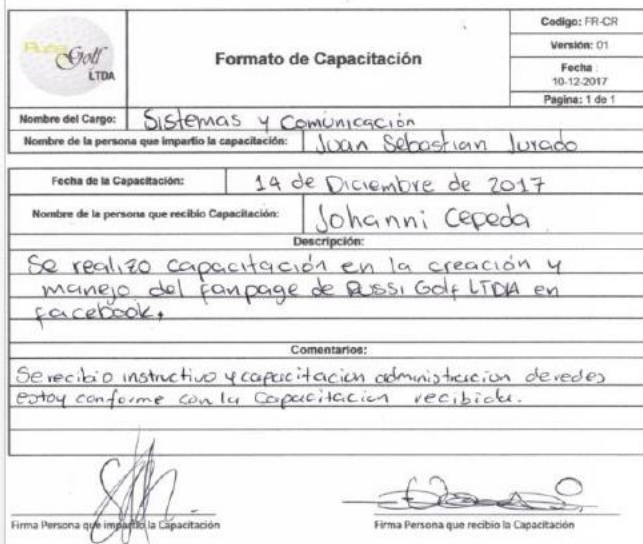 Russi
Golf
LTDA
Formato de Capacitación
Codigo: FR-CR
Versión: 01
Fecha :
10-12-2017
Pagina: 1 de 1
Nombre del Cargo: Sistemas y Comunicación
Nombre de la persona que impartio la capacitación: Juan Sebastian Jurado
Fecha de la Capacitación: 14 de Diciembre de 2017
Nombre de la persona que recibio Capacitación: Johanni Cepeda
Descripción:
Se realizo capacitación en la creación y
manejo del fanpage de RUSSI Golf LTDA en
facebook.
Comentarios:
Se recibio instructivo y capacitacion administracion de redes
estoy conforme con la Capacitacion recibida.
Firma Persona que impartio la Capacitación
Firma Persona que recibio la Capacitación